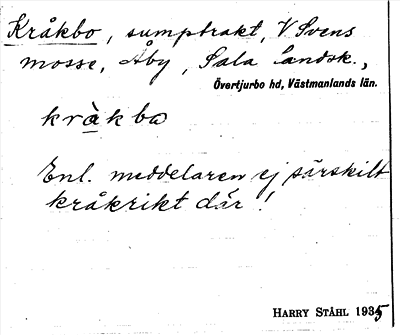 Kråkbo, sumptrakt, V Svens
mosse, Åby, Sala landsk.,
Övertjurbo hd, Västmanlands län.
kràkbω
Enl. meddelaren ej särskilt
kråkrikt där!
HARRY STÅHL 1935